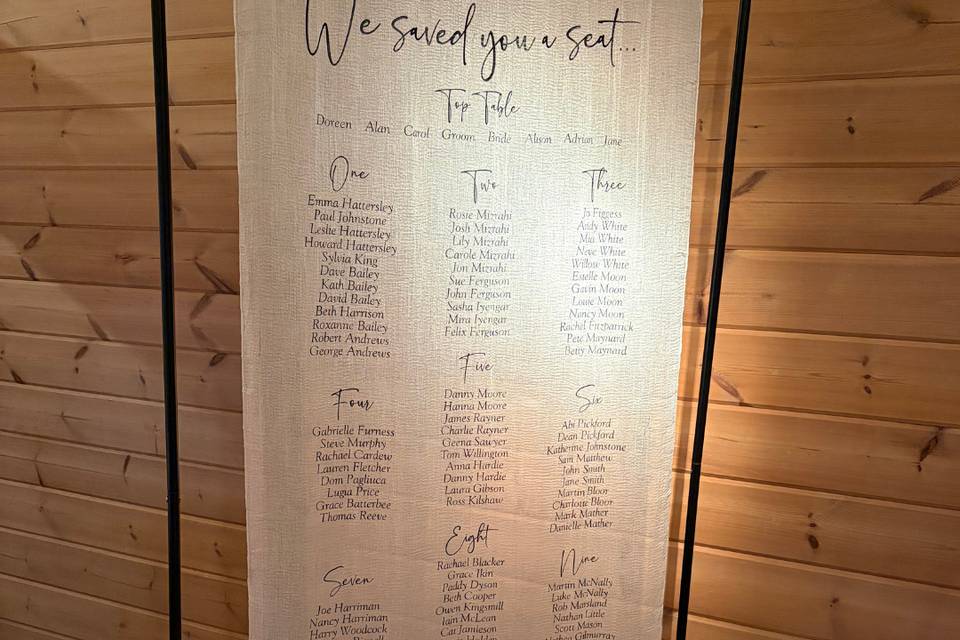 We saved you a seat...
Top Table
Doreen Alan Carol Groom Bride Alison Adrian Jane
One
Emma Hattersley
Paul Johnstone
Leslie Hattersley
Howard Hattersley
Sylvia King
Dave Bailey
Kath Bailey
David Bailey
Beth Harrison
Roxanne Bailey
Robert Andrews
George Andrews
Two
Rosie Mizrahi
Josh Mizrahi
Lily Mizrahi
Carole Mizrahi
Jon Mizrahi
Sue Ferguson
John Ferguson
Sasha Iyengar
Mira Iyengar
Felix Ferguson
Three
Jo Figgess
Andy White
Mia White
Neve White
Willow White
Estelle Moon
Gavin Moon
Louie Moon
Nancy Moon
Rachel Fitzpatrick
Pete Maynard
Betty Maynard
Four
Gabrielle Furness
Steve Murphy
Rachael Cardew
Lauren Fletcher
Dom Pagliuca
Lugia Price
Grace Batterbee
Thomas Reeve
Five
Danny Moore
Hanna Moore
James Rayner
Charlie Rayner
Geena Sawyer
Tom Willington
Anna Hardie
Danny Hardie
Laura Gibson
Ross Kilshaw
Six
Abi Pickford
Dean Pickford
Katherine Johnstone
Sam Matthew
John Smith
Jane Smith
Martin Bloor
Charlotte Bloor
Mark Mather
Danielle Mather
Seven
Joe Harriman
Nancy Harriman
Harry Woodcock
Eight
Rachael Blacker
Grace Ikin
Paddy Dyson
Beth Cooper
Owen Kingsmill
Iain McLean
Cat Jamieson
Nine
Martin McNally
Luke McNally
Rob Marsland
Nathan Little
Scott Mason
Gilmurray